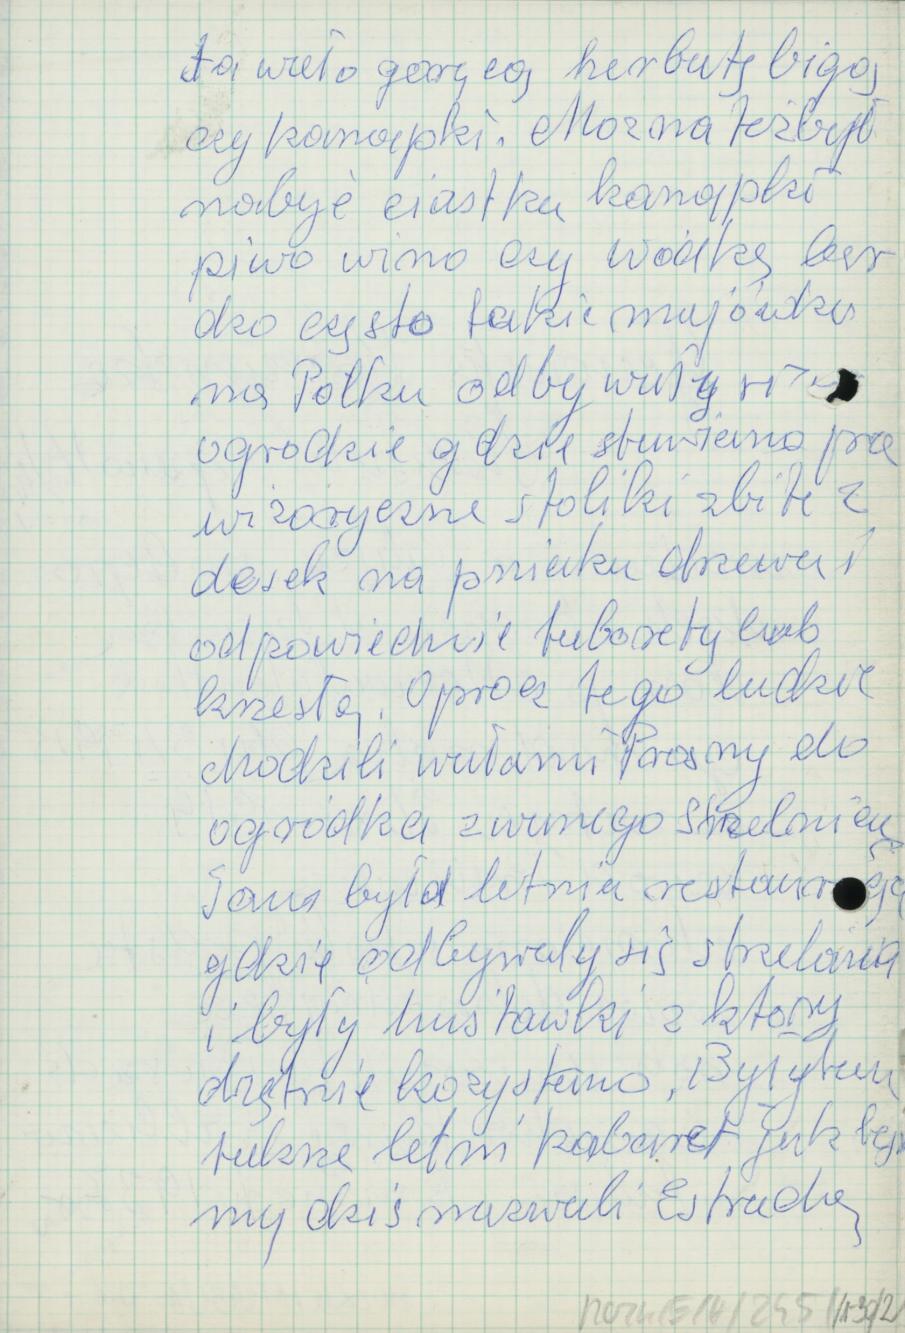 ta wało gorącą herbatę bigos
czy kanapki. Można też było
nabyć ciastka kanapki
piwo wino czy wódkę bar
dzo często takie majówki
na Polku odbywały się w
ogrodzie gdzie stawiano pro
wizoryczne stoliki zbite z
desek na pniaku drzewa i
odpowiednie taborety lub
krzesła. Oprócz tego ludzie
chodzili wałami Prosny do
ogródka zwanego Strzelnicą
Tam była letnia restauracja
gdzie odbywały się strzelania
i były huśtawki z który
chętnie kozystano. Był tam
także letni kabaret jak byś
my dziś nazwali Estradą